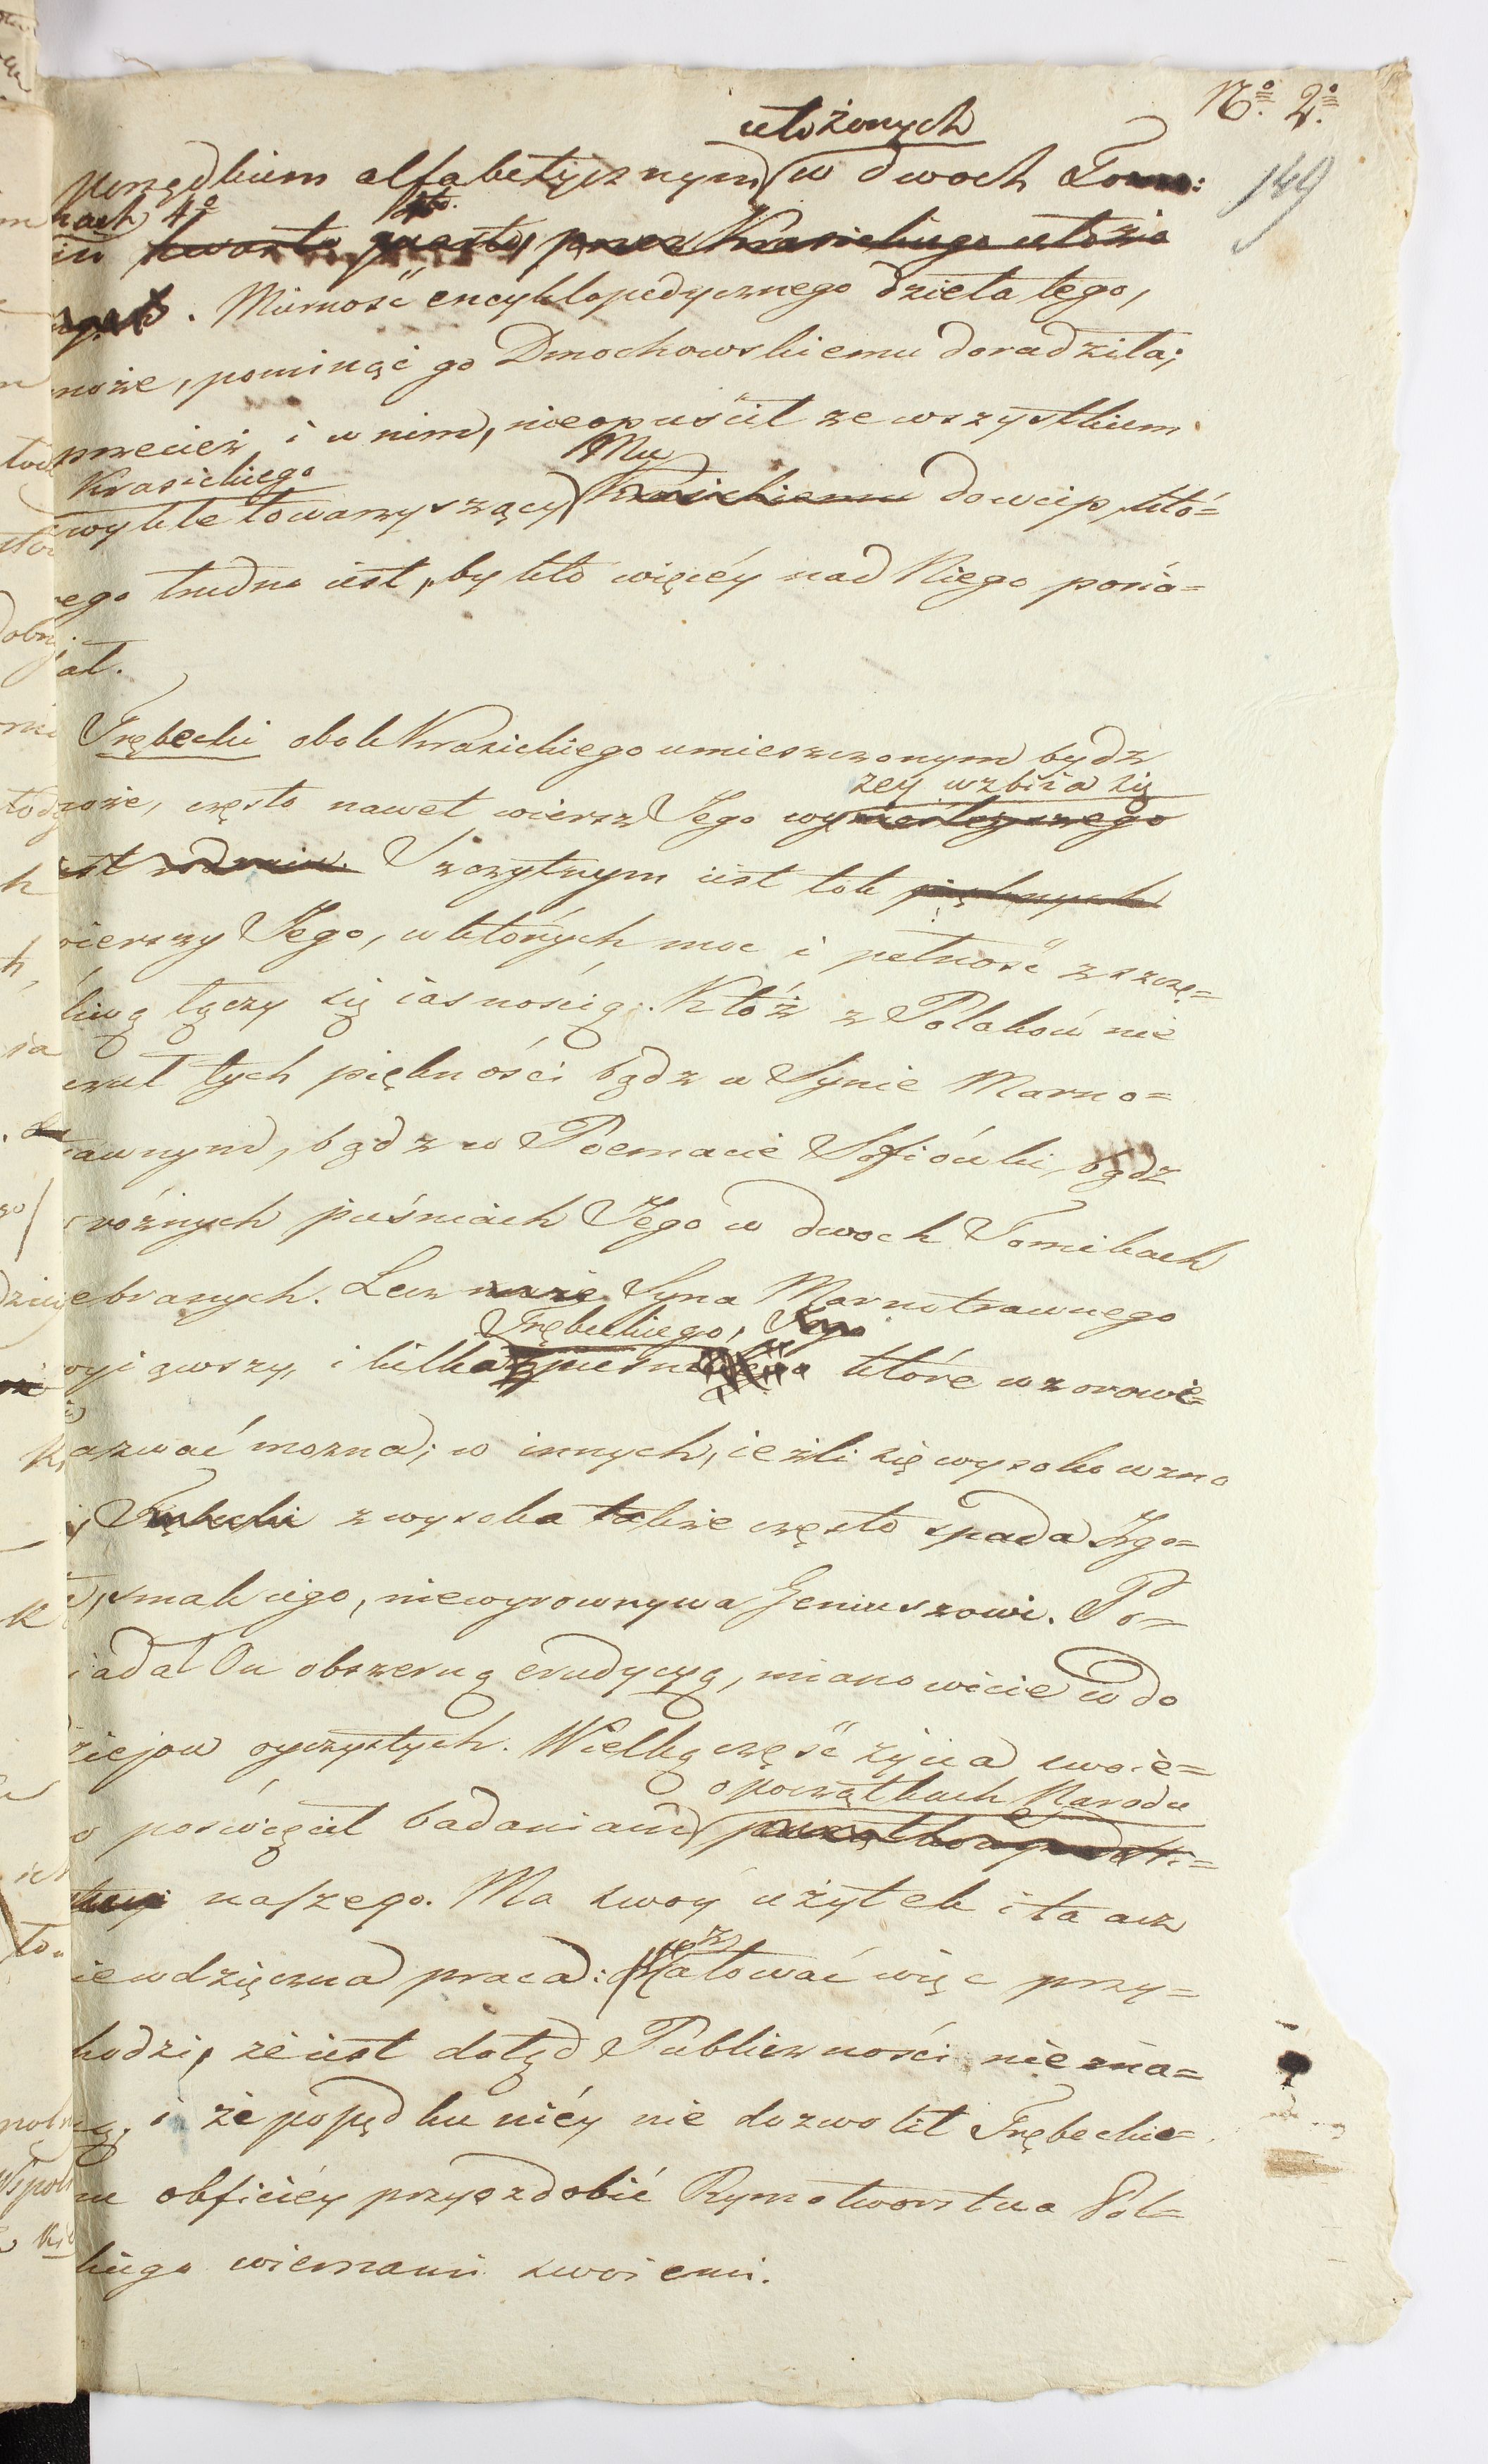 Nº 2º
149
ułożonych
porządkiem alfabetycznym w dwoch Tom:
kach 4º
kwarto przez Krasickiego ułożo
. Mierność encyklopedycznego dzieła tego,
może, pominąć go Dmochowskiemu doradziła;
przecież i w nim, nieopuścił ze wszystkiem
Krasickiego Mu
zwykle towarzyszący Krasickiemu dowcip, któ=
rego trudno iest, by kto więcéy nad Niego posia=
dał.
Trębecki obok Krasickiego umieszczonym bydz
zey wzbiia się
może, często nawet wiersz Jego wy
iest rodzaiu. Szczytnym iest tok pięknych
wierszy Jego, w których moc i pełność z szczę=
liwą łączy się iasnością. Któż z Polaków nie
czuł tych piękności bądz w Synie Marno=
rawnym, bądz w Poemacie Sofiówki, bądz
różnych pieśniach Jego w dwoch Tomikach
zebranych. Lecz Syna Marnotrawnego
Trębeckiego,
wyiąwszy, i kilka pieśni które wzorowe=
nazwać można; w innych, ieżli się wysoko wzno
Trębecki z wysoka także często spada Zgo=
smak iego, niewyrownywa Geniuszowi. Po=
iadał On obszerną erudycyą, mianowicie w do
ziejow oyczystych. Wielką część życia swoie=
o początkach Narodu
o poświęcił badaniom
naszego. Ma swoy użytek i ta acz
niewdzięczna praca: żałować więc przy=
hodzi, że iest dotąd Publiczności nie zna=
i że popęd ku niéy nie dozwolił Trębeckie=
mu obficiéy przyozdobić Rymotworstwa Pol=
kiego wierszami swoiemi.